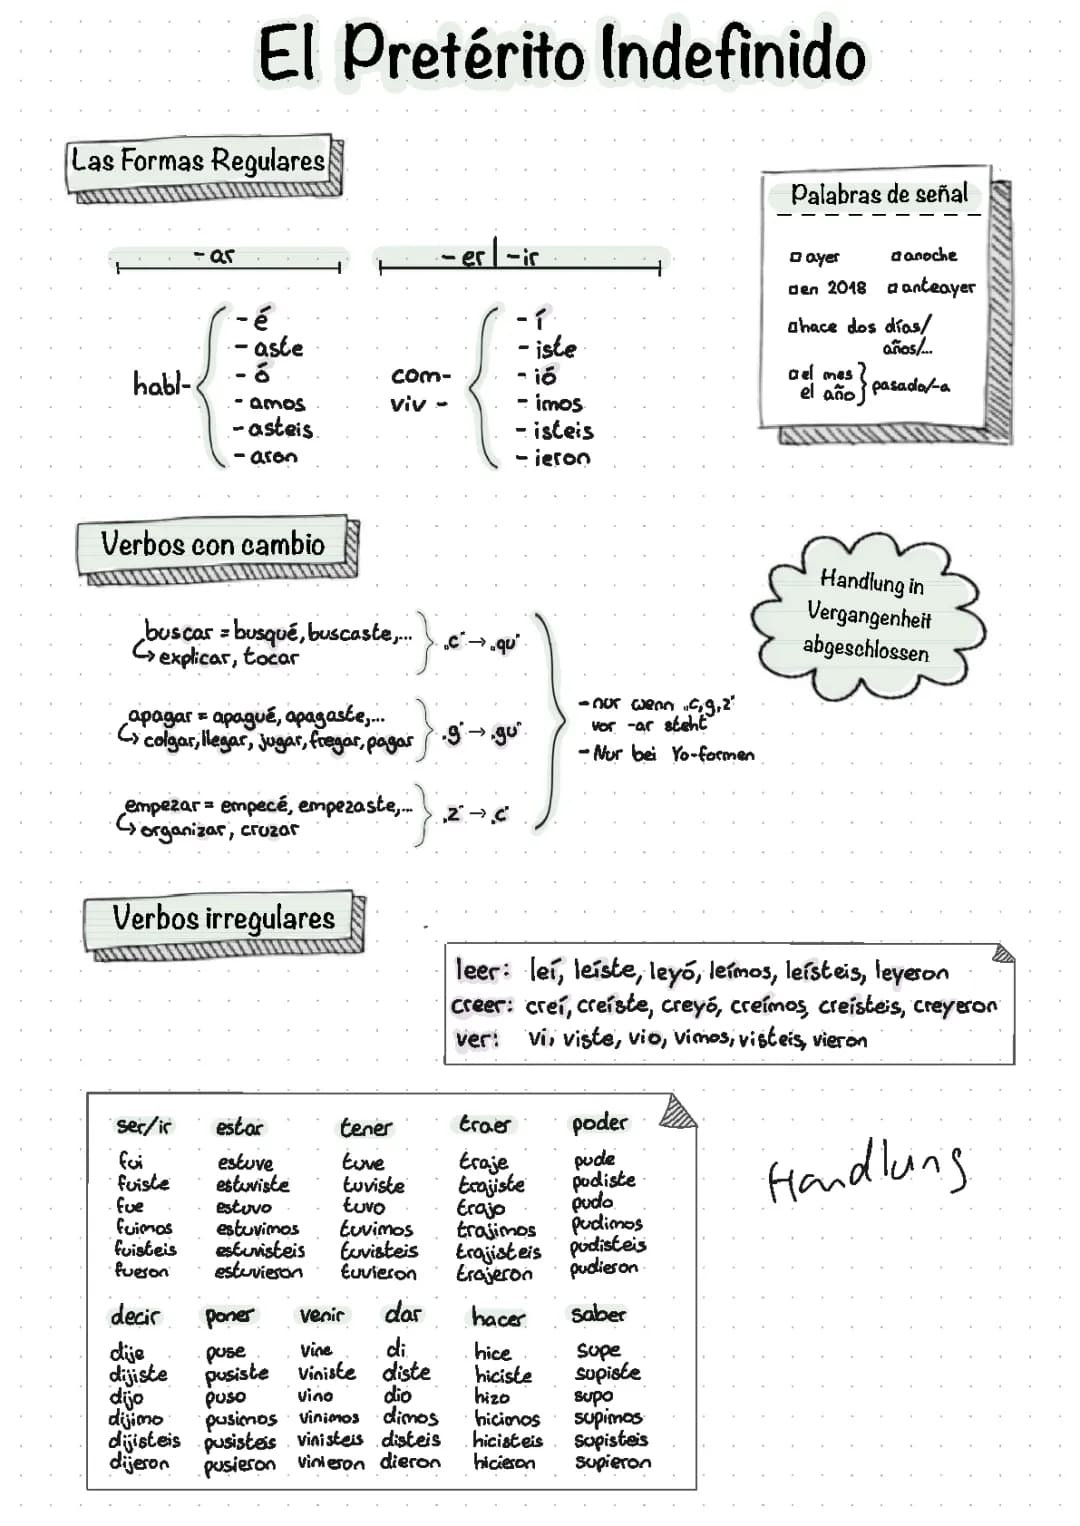 El Pretérito Indefinido
Las Formas Regulares
Palabras de señal
□ ayer □ anoche
□ en 2018 □ anteayer
□ hace dos días/
años/...
□ el mes
el año } pasado/-a
- ar
habl-
- é
- aste
- ó
- amos
- asteis
- aron
- er | - ir
com-
viv -
- í
- iste
- ió
- imos
- isteis
- ieron
Verbos con cambio
buscar = busqué, buscaste,...
↳ explicar, tocar
„c" → „qu"
apagar = apagué, apagaste,...
↳ colgar, llegar, jugar, fregar, pagar
„g" → „gu"
empezar = empecé, empezaste,...
↳ organizar, cruzar
„z" → „c"
- nur wenn „c,g,z"
vor -ar steht
- Nur bei Yo-formen
Handlung in
Vergangenheit
abgeschlossen
Verbos irregulares
leer: leí, leíste, leyó, leímos, leísteis, leyeron
creer: creí, creíste, creyó, creímos, creísteis, creyeron
ver: vi, viste, vio, vimos, visteis, vieron
ser/ir estar tener traer poder
fui estuve tuve traje pude
fuiste estuviste tuviste trajiste pudiste
fue estuvo tuvo trajo pudo
fuimos estuvimos tuvimos trajimos pudimos
fuisteis estuvisteis tuvisteis trajisteis pudisteis
fueron estuvieron tuvieron trajeron pudieron
decir poner venir dar hacer saber
dije puse vine di hice supe
dijiste pusiste viniste diste hiciste supiste
dijo puso vino dio hizo supo
dijimo pusimos vinimos dimos hicimos supimos
dijisteis pusisteis vinisteis disteis hicisteis supisteis
dijeron pusieron vinieron dieron hicieron supieron
Handlung